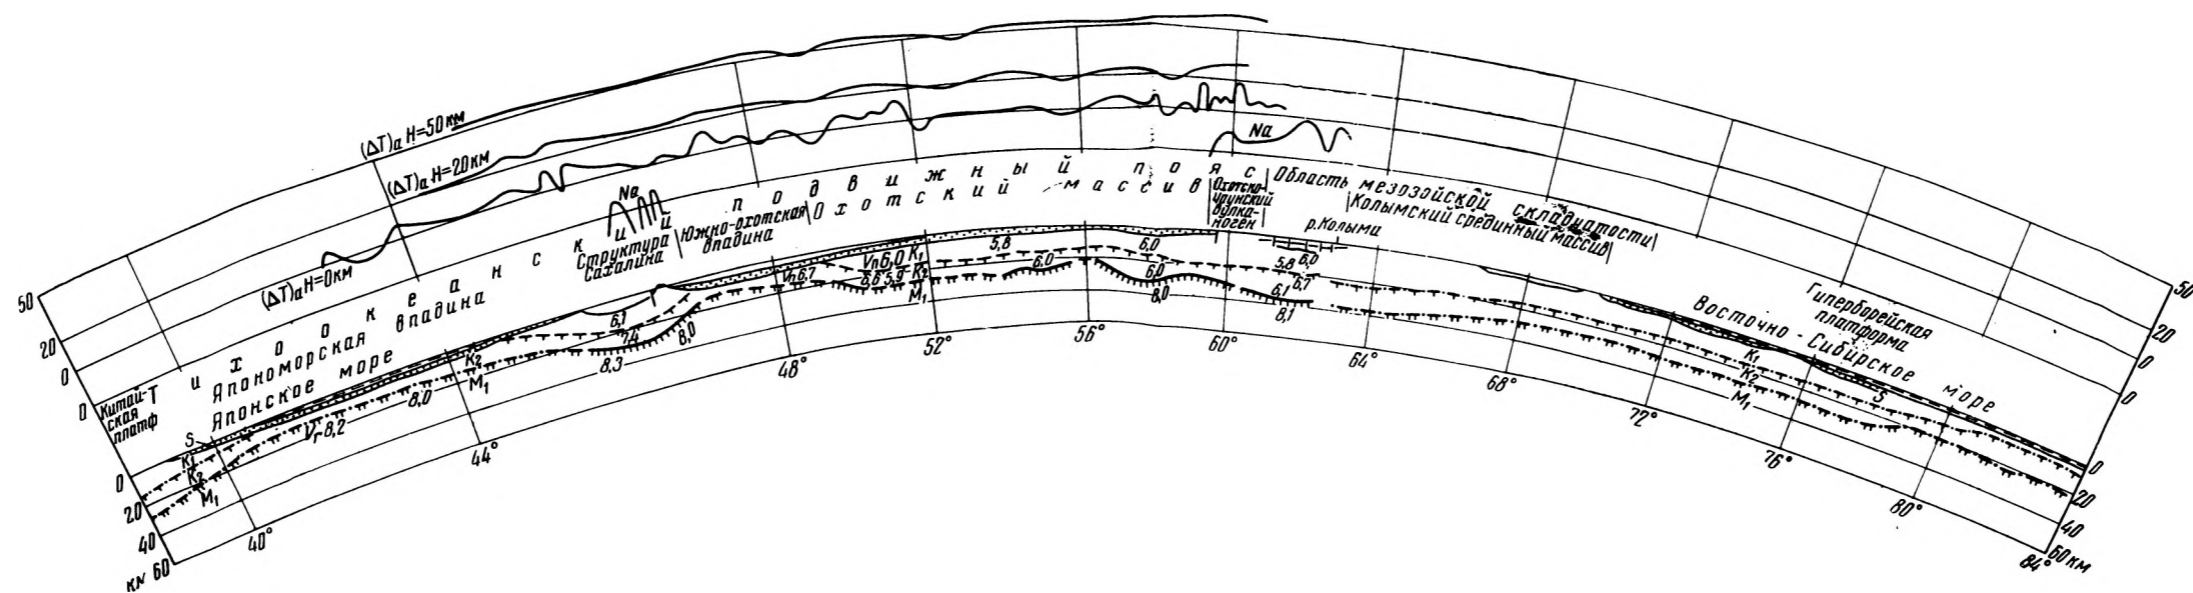 (ΔT)a H=50км
(ΔT)a H=20км
(ΔT)a H=0км
Na
Na
Тихоокеанский подвижный пояс
Область мезозойской складчатости
Китай-
ская
платф
Япономорская
впадина
Японское море
Структура
Сахалина
Южно-охотская
впадина
Охотский массив
Охотско-
вулка-
ноген
Колымский срединный массив
р.Колыма
Гиперборейская
платформа
Восточно-Сибирское море
50
20
0
0
0
20
40
км 60
50
20
0
0
0
20
40
60км
S
K1
K2
M1
Vг 8,2
8,0
K2
M1
6,1
7,4
8,3
8,0
Vп 6,7
Vп 6,0 K1
6,6 5,9 K2
M1
5,8
6,0
6,0
6,0
8,0
5,8
6,0
6,7
6,1
8,1
K1
K2
M1
S
40°
44°
48°
52°
56°
60°
64°
68°
72°
76°
80°
84°